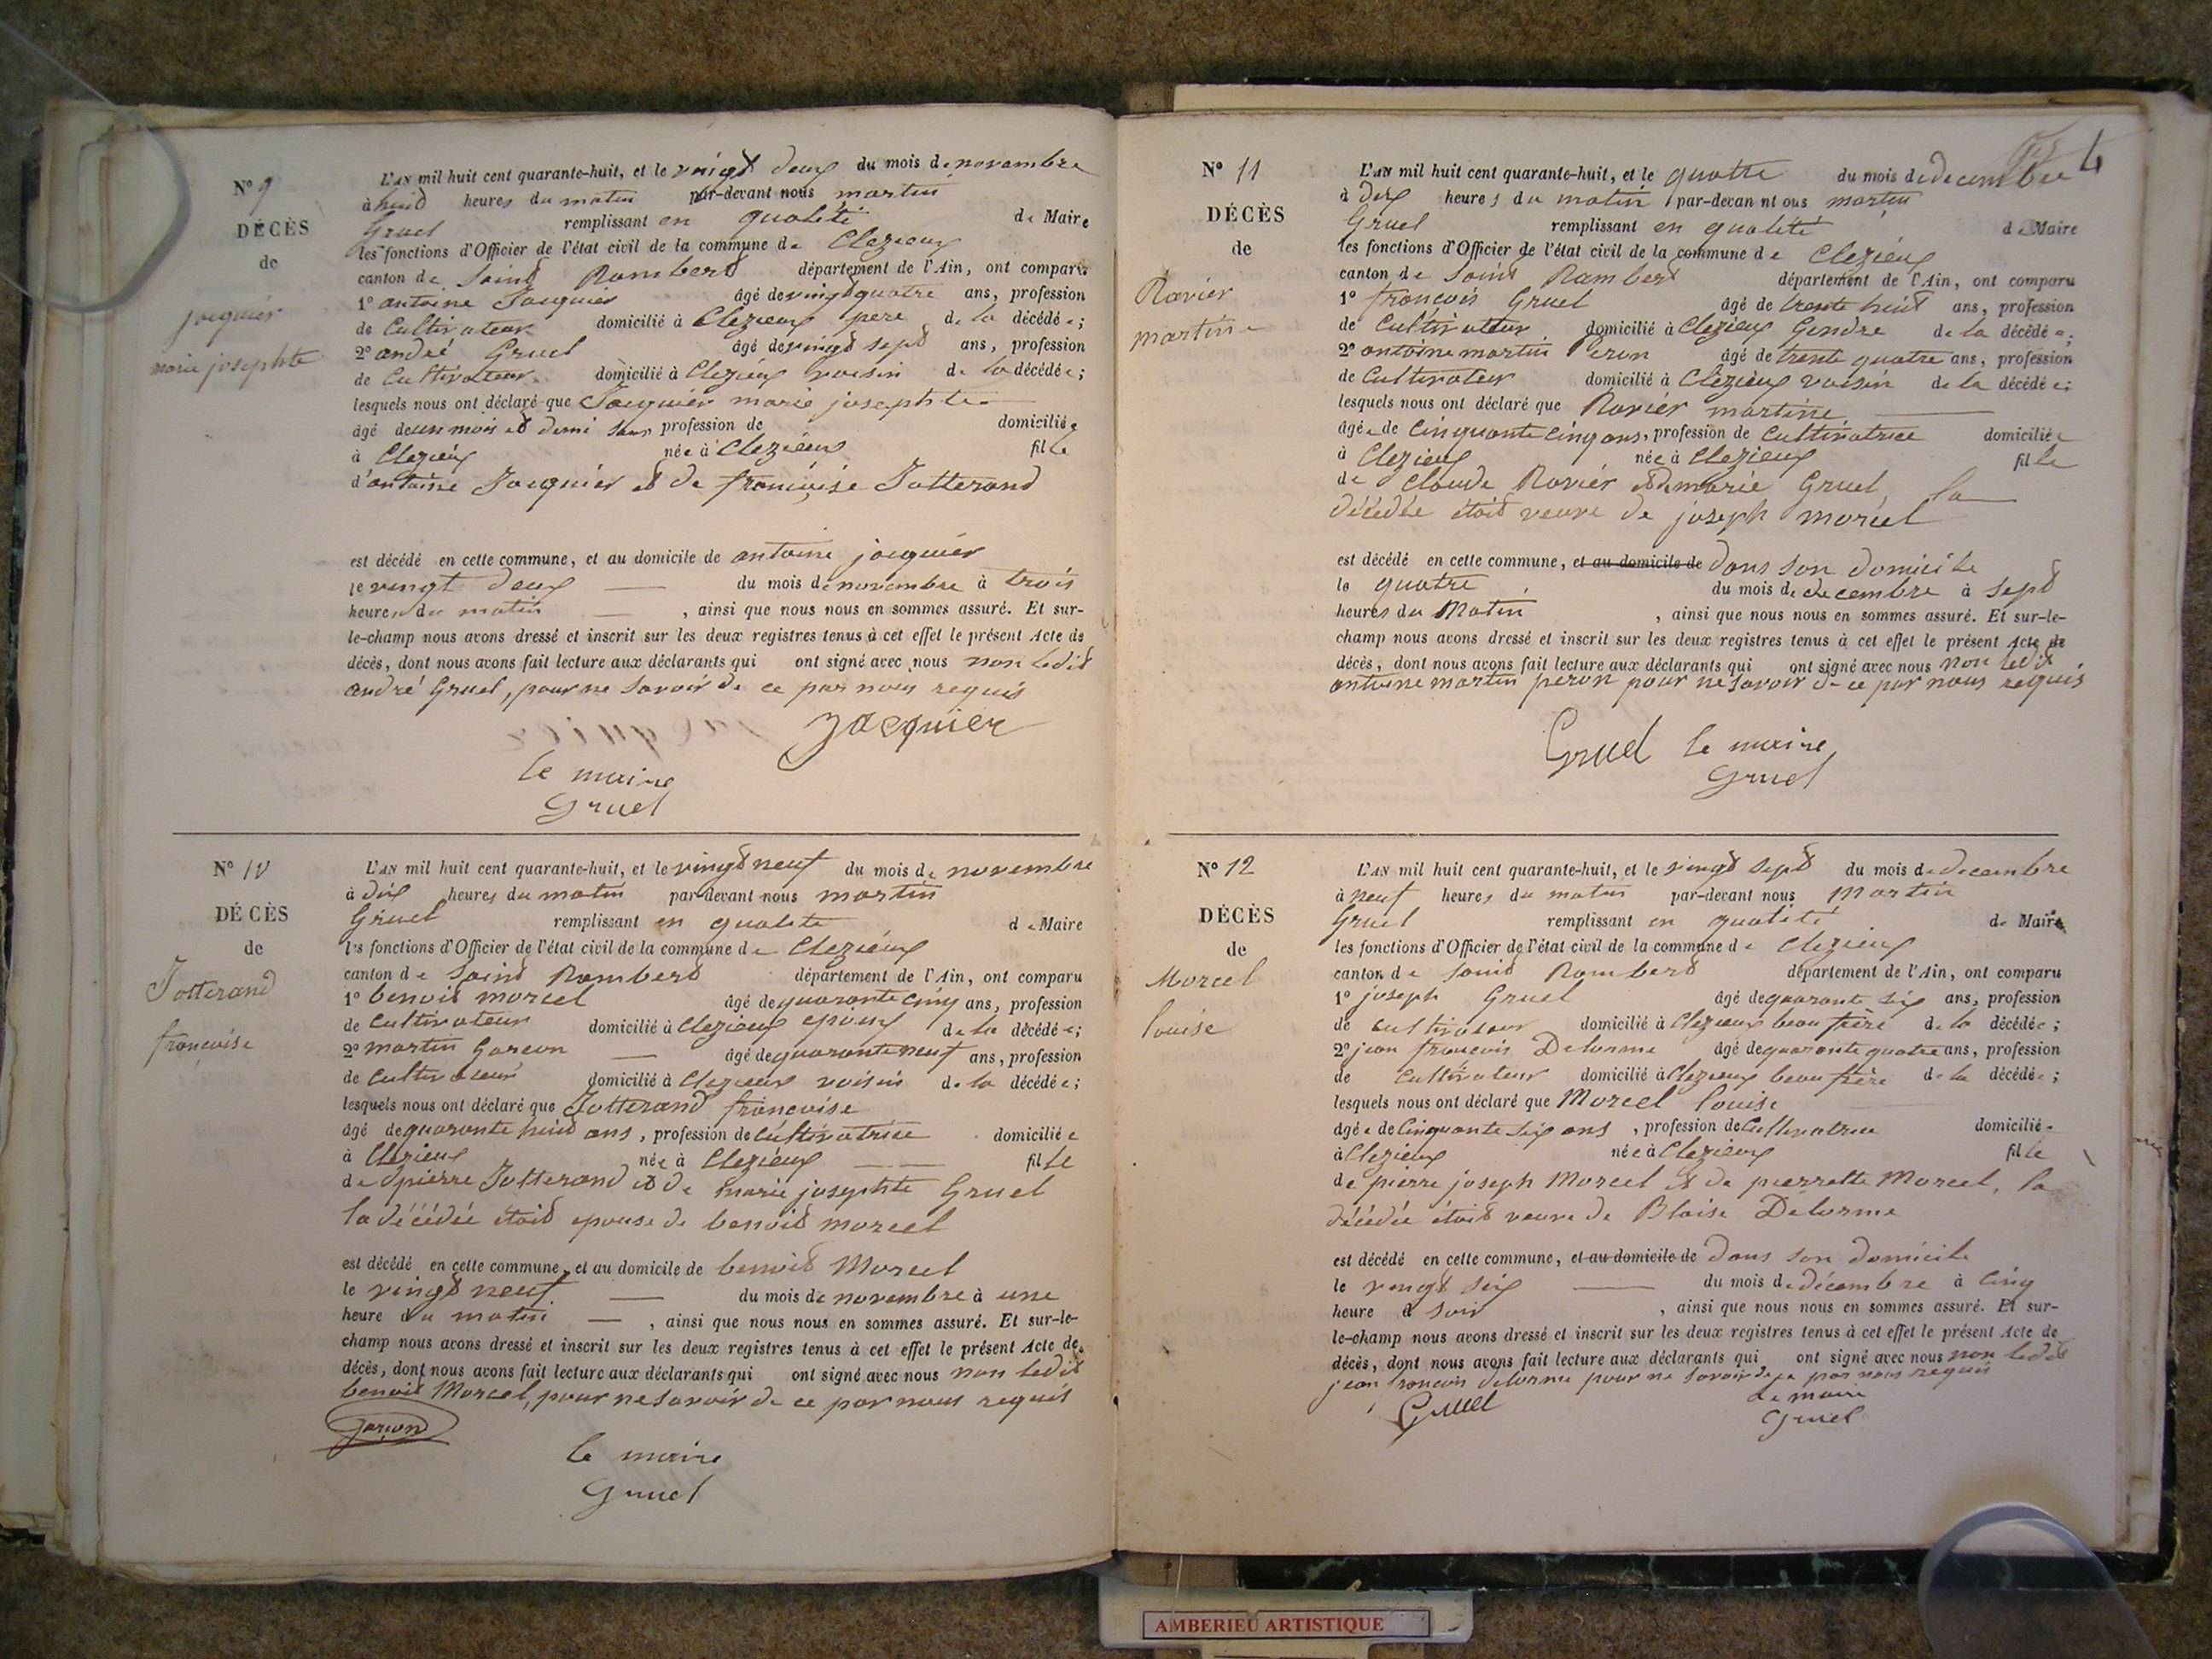 N° 9
DÉCÈS
de
jacquier
marie josephte
L'AN mil huit cent quarante-huit, et le vingt deux du mois de novembre
à huit heures du matin par-devant nous martin
Gruel remplissant en qualité de Maire
les fonctions d'Officier de l'état civil de la commune de Clezieux
canton de Saint Rambert département de l'Ain, ont comparu
1° antoine Jacquier âgé de vingt quatre ans, profession
de Cultivateur domicilié à Clezieux pere de la décédée;
2° andré Gruel âgé de vingt sept ans, profession
de Cultivateur domicilié à Clezieux voisin de la décédée;
lesquels nous ont déclaré que Jacquier marie josephte
âgé de un mois et demi sans profession de domiciliée
à Clezieux née à Clezieux fille
d'antoine Jacquier et de françoise Jotterand
est décédé en cette commune, et au domicile de antoine jacquier
le vingt deux du mois de novembre à trois
heures du matin , ainsi que nous nous en sommes assuré. Et sur-
le-champ nous avons dressé et inscrit sur les deux registres tenus à cet effet le présent Acte de
décès, dont nous avons fait lecture aux déclarants qui ont signé avec nous non ledit
andré Gruel, pour ne savoir de ce par nous requis
Jacquier
le maire
Gruel
N° 10
DÉCÈS
de
Jotterand
francoise
L'AN mil huit cent quarante-huit, et le vingt neuf du mois de novembre
à dix heures du matin par-devant nous martin
Gruel remplissant en qualité de Maire
les fonctions d'Officier de l'état civil de la commune de Clezieux
canton de Saint Rambert département de l'Ain, ont comparu
1° benoit morcel âgé de quarante cinq ans, profession
de Cultivateur domicilié à Clezieux epoux de la décédée;
2° martin Garcon âgé de quarante neuf ans, profession
de Cultivateur domicilié à Clezieux voisin de la décédée;
lesquels nous ont déclaré que Jotterand francoise
âgé de quarante huit ans, profession de Cultivatrice domiciliée
à Clezieux née à Clezieux fille
de pierre Jotterand et de marie josephte Gruel
la décédée étoit epouse de benoit morcel
est décédé en cette commune, et au domicile de benoit Morcel
le vingt neuf du mois de novembre à une
heure du matin , ainsi que nous nous en sommes assuré. Et sur-le-
champ nous avons dressé et inscrit sur les deux registres tenus à cet effet le présent Acte de
décès, dont nous avons fait lecture aux déclarants qui ont signé avec nous non ledit
benoit Morcel, pour ne savoir de ce par nous requis
garçon
le maire
Gruel
N° 11
DÉCÈS
de
Ravier
martine
L'AN mil huit cent quarante-huit, et le quatre du mois de decembre
à dix heures du matin par-devan nt ous martin
Gruel remplissant en qualité de Maire
les fonctions d'Officier de l'état civil de la commune de Clezieux
canton de Saint Rambert département de l'Ain, ont comparu
1° françois Gruel âgé de trente huit ans, profession
de Cultivateur domicilié à Clezieux Gendre de la décédée;
2° antoine martin Peron âgé de trente quatre ans, profession
de Cultivateur domicilié à Clezieux voisin de la décédée;
lesquels nous ont déclaré que Ravier martine
âgée de Cinquante cinq ans, profession de Cultivatrice domiciliée
à Clezieux née à Clezieux fille
de Claude Ravier et de marie Gruel, la
décédée étoit veuve de joseph morcel
est décédé en cette commune, et au domicile de dans son domicile
le quatre du mois de decembre à sept
heures du Matin , ainsi que nous nous en sommes assuré. Et sur-le-
champ nous avons dressé et inscrit sur les deux registres tenus à cet effet le présent Acte de
décès, dont nous avons fait lecture aux déclarants qui ont signé avec nous non ledit
antoine martin peron pour ne savoir de ce par nous requis
Gruel le maire
Gruel
N° 12
DÉCÈS
de
Morcel
louise
L'AN mil huit cent quarante-huit, et le vingt sept du mois de decembre
à neuf heures du matin par-devant nous Martin
Gruel remplissant en qualité de Maire
les fonctions d'Officier de l'état civil de la commune de Clezieux
canton de Saint Rambert département de l'Ain, ont comparu
1° joseph Gruel âgé de quarante six ans, profession
de cultivateur domicilié à Clezieux beau frère de la décédée;
2° jean francois Delorme âgé de quarante quatre ans, profession
de Cultivateur domicilié à Clezieux beau frère de la décédée;
lesquels nous ont déclaré que Morcel louise
âgée de Cinquante six ans, profession de Cultivatrice domiciliée
à Clezieux née à Clezieux fille
de pierre joseph Morcel et de pierrette Morcel, la
décédée étoit veuve de Blaise Delorme
est décédé en cette commune, et au domicile de dans son domicile
le vingt six du mois de décembre à Cinq
heure d soir , ainsi que nous nous en sommes assuré. Et sur-
le-champ nous avons dressé et inscrit sur les deux registres tenus à cet effet le présent Acte de
décès, dont nous avons fait lecture aux déclarants qui ont signé avec nous non ledit
jean francois delorme pour ne savoir de ce par nous requis
Gruel le maire
Gruel
AMBERIEU ARTISTIQUE